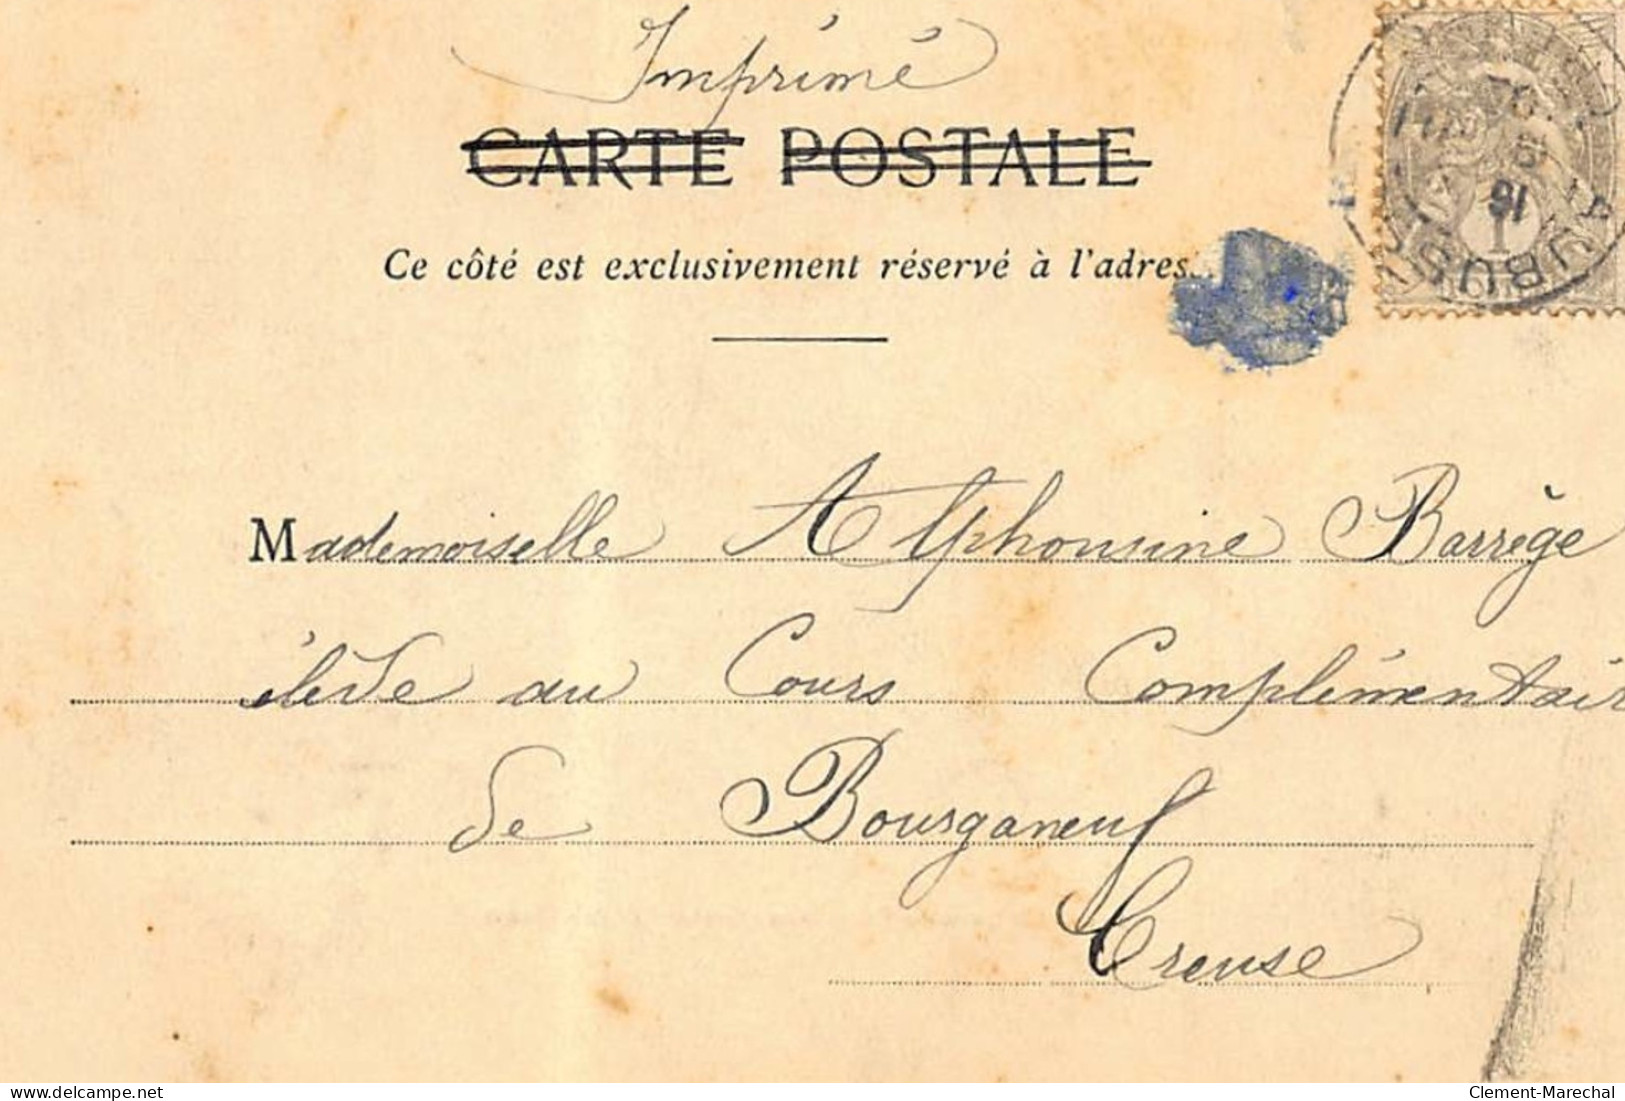 Imprimé
CARTE POSTALE
Ce côté est exclusivement réservé à l'adres
1
AUBUSSON
Mademoiselle Alphonsine Barrège
élève au Cours Complémentair
de Bourganeuf
Creuse
www.delcampe.net
Clement-Marechal